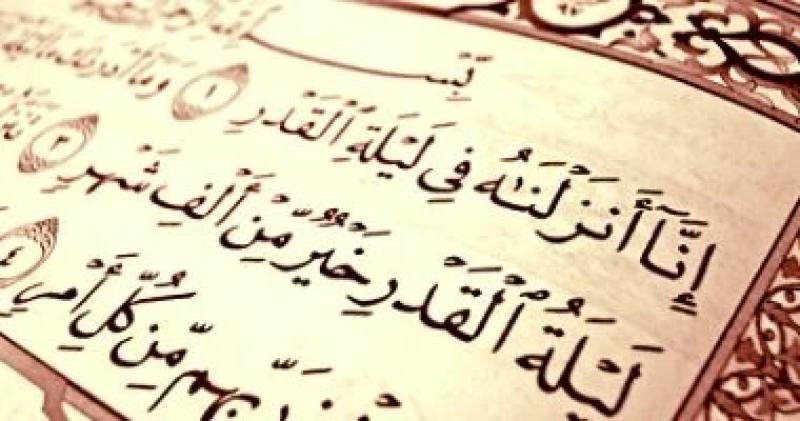 بِّسـ
إِنَّآ أَنزَلۡنَـٰهُ فِي لَيۡلَةِ ٱلۡقَدۡرِ ١ وَمَآ أَدۡرَىٰكَ
لَيۡلَةُ ٱلۡقَدۡرِ خَيۡرٞ مِّنۡ أَلۡفِ شَهۡرٖ ٣
رَبِّهِم مِّن كُلِّ أَمۡرٖ ٤